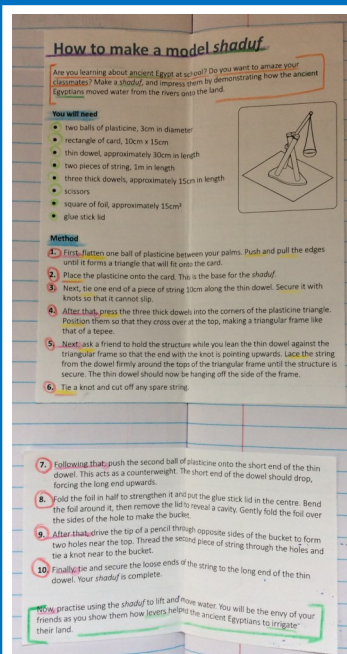 How to make a model shaduf
Are you learning about ancient Egypt at school? Do you want to amaze your
classmates? Make a shaduf, and impress them by demonstrating how the ancient
Egyptians moved water from the rivers onto the land.
You will need
• two balls of plasticine, 3cm in diameter
• rectangle of card, 10cm x 15cm
• thin dowel, approximately 30cm in length
• two pieces of string, 1m in length
• three thick dowels, approximately 15cm in length
• scissors
• square of foil, approximately 15cm²
• glue stick lid
Method
1. First, flatten one ball of plasticine between your palms. Push and pull the edges
until it forms a triangle that will fit onto the card.
2. Place the plasticine onto the card. This is the base for the shaduf.
3. Next, tie one end of a piece of string 10cm along the thin dowel. Secure it with
knots so that it cannot slip.
4. After that, press the three thick dowels into the corners of the plasticine triangle.
Position them so that they cross over at the top, making a triangular frame like
that of a tepee.
5. Next, ask a friend to hold the structure while you lean the thin dowel against the
triangular frame so that the end with the knot is pointing upwards. Lace the string
from the dowel firmly around the tops of the triangular frame until the structure is
secure. The thin dowel should now be hanging off the side of the frame.
6. Tie a knot and cut off any spare string.
7. Following that, push the second ball of plasticine onto the short end of the thin
dowel. This acts as a counterweight. The short end of the dowel should drop,
forcing the long end upwards.
8. Fold the foil in half to strengthen it and put the glue stick lid in the centre. Bend
the foil around it, then remove the lid to reveal a cavity. Gently fold the foil over
the sides of the hole to make the bucket.
9. After that, drive the tip of a pencil through opposite sides of the bucket to form
two holes near the top. Thread the second piece of string through the holes and
tie a knot near to the bucket.
10. Finally, tie and secure the loose ends of the string to the long end of the thin
dowel. Your shaduf is complete.
Now, practise using the shaduf to lift and move water. You will be the envy of your
friends as you show them how levers helped the ancient Egyptians to irrigate
their land.